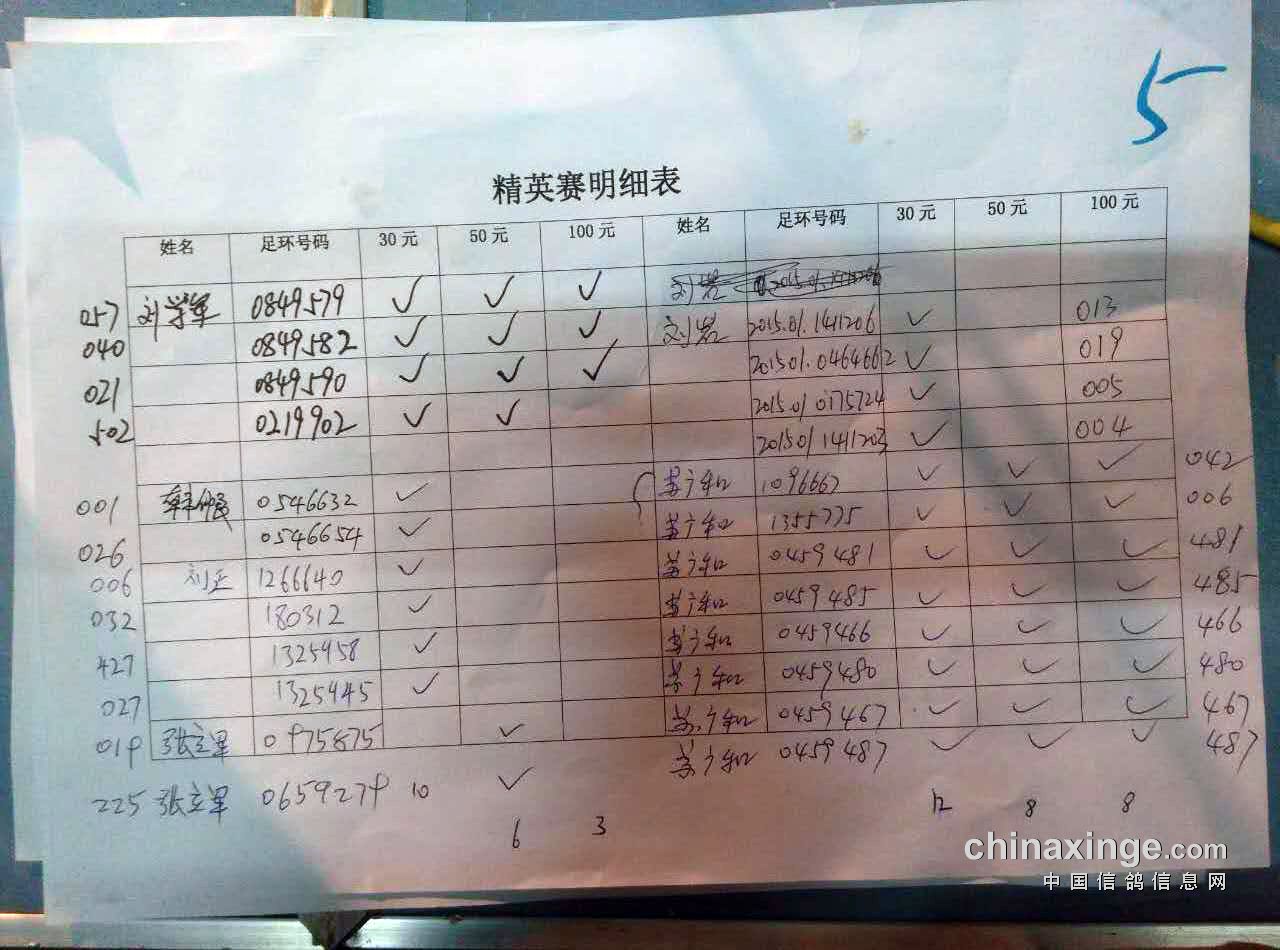 5
精英赛明细表
姓名 足环号码 30元 50元 100元 姓名 足环号码 30元 50元 100元
057 刘学军 0849579 ✓ ✓ ✓ 刘岩
040 0849582 ✓ ✓ ✓ 刘岩 2015.01.1411206 ✓ 013
021 0849590 ✓ ✓ ✓ 2015.01.0464662 ✓ 019
502 0219902 ✓ ✓ 2015.01 0175724 ✓ 005
2015.01 1411203 ✓ 004
001 0546632 ✓ 1096667 ✓ ✓ ✓ 042
026 0546654 ✓ 1355775 ✓ ✓ ✓ 006
006 刘正 1266640 ✓ 0459481 ✓ ✓ ✓ 481
032 180312 ✓ 0459485 ✓ ✓ ✓ 485
427 1325958 ✓ 0459466 ✓ ✓ ✓ 466
027 1325945 ✓ 0459480 ✓ ✓ ✓ 480
019 张立军 0975875 ✓ 0459467 ✓ ✓ ✓ 467
225 张立军 0659279 10 ✓ 0459487 ✓ ✓ ✓ 487
6 3 12 8 8
chinaxinge.com
中国信鸽信息网